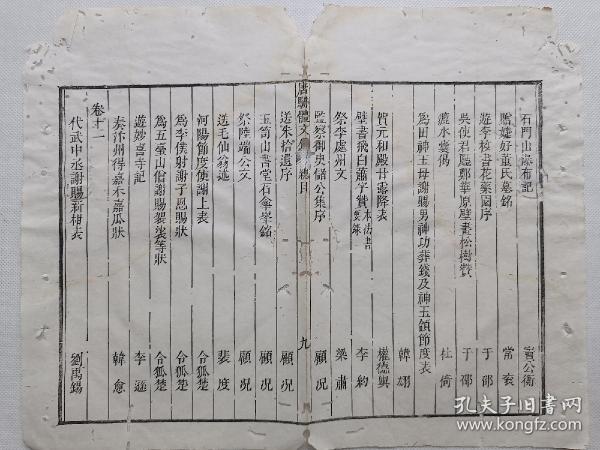 石門山瀑布記 竇公衡
贈婕妤董氏墓銘 常袞
遊李校書花藥園序 于邵
吳使君廳鄭華原壁畫松樹贊 于邵
漉水囊偈 杜倚
爲田神玉母謝賜男神功葬錢及神玉領節度表
韓翃
賀元和殿甘露降表 權德輿
壁書飛白蕭字贊本法書要錄 李約
祭李處州文 梁肅
監察御史儲公集序 顧況
唐駢體文 總目 九
送朱拾遺序 顧況
玉笥山書堂石龕峯銘 顧況
祭陸端公文 顧況
送毛仙翁述 裴度
河陽節度使謝上表 令狐楚
爲李僕射謝子恩賜狀 令狐楚
爲五臺山僧謝賜袈裟等狀 令狐楚
遊妙喜寺記 李遜
奏汴州得嘉禾嘉瓜狀 韓愈
卷十二
代武中丞謝賜新柑表 劉禹錫
孔夫子旧书网
www.kongfz.com